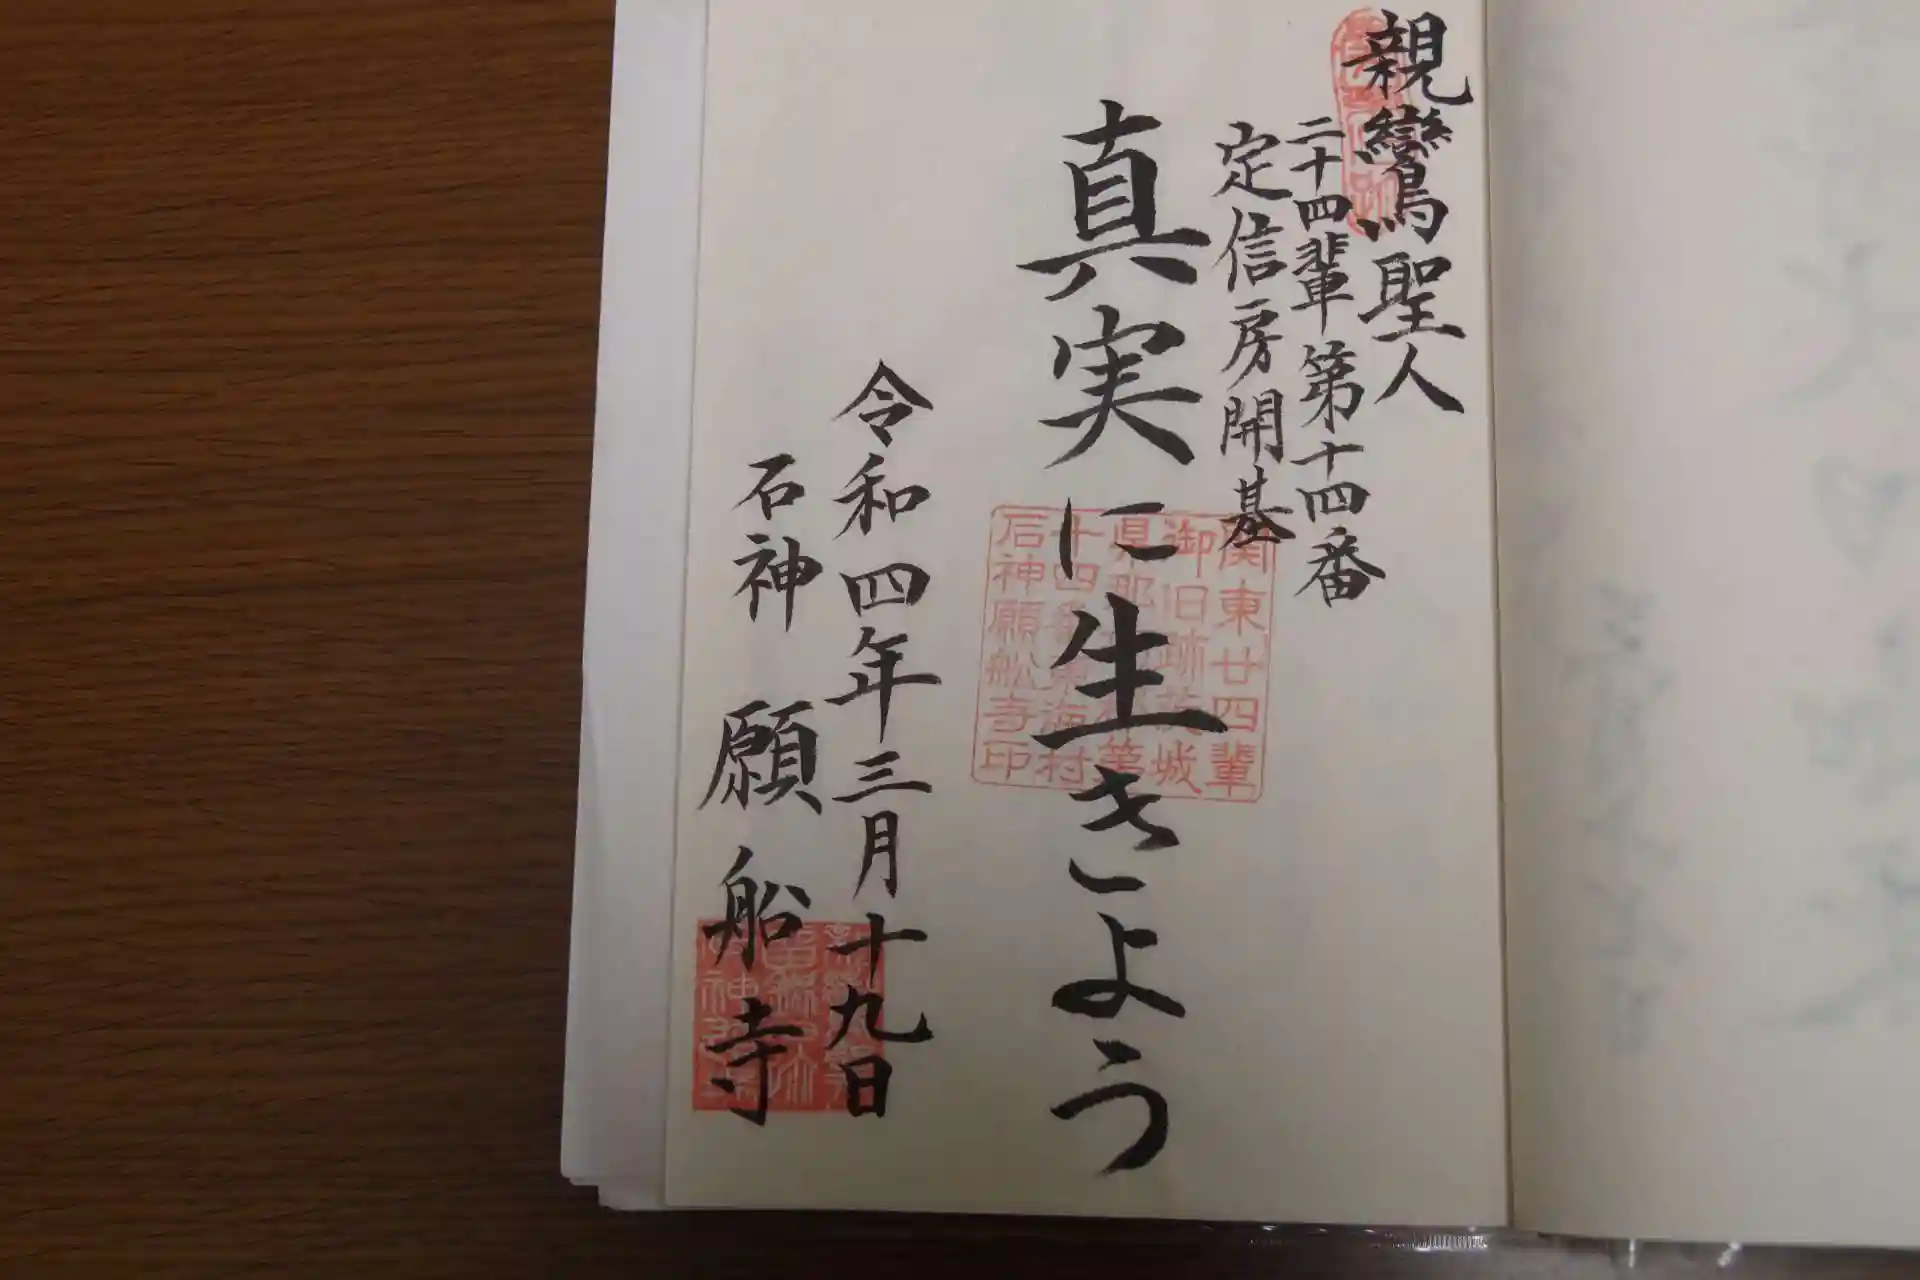 親鸞聖人
二十四輩第十四番
定信房開基
真実に生きよう
令和四年三月十九日
石神 願船寺
関東廿四輩
御旧跡茨城
県那珂郡第
十四番東海村
石神願舩寺印